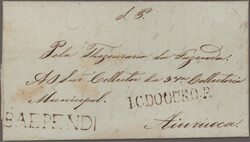 S. P.
Pela Thezouraria da Fazenda
Ao Snr Collector da 3ª Collectoria
Municipal.
I.C.DOOURO.P.
BAEPENDI
Aiuruoca